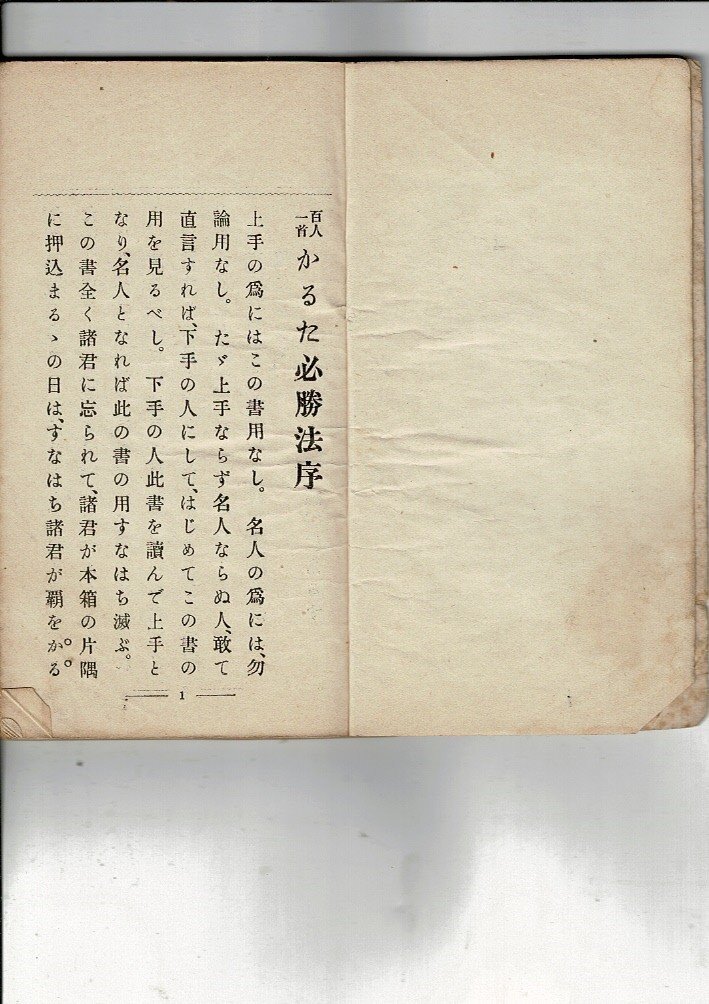 百人一首かるた必勝法序
上手の爲にはこの書用なし。名人の爲には、勿
論用なし。たゞ上手ならず名人ならぬ人、敢て
直言すれば、下手の人にして、はじめてこの書の
用を見るべし。下手の人此書を讀んで上手と
なり、名人となれば此の書の用すなはち滅ぶ。
この書全く諸君に忘られて、諸君が本箱の片隅
に押込まるゝの日は、すなはち諸君が覇をかる
1